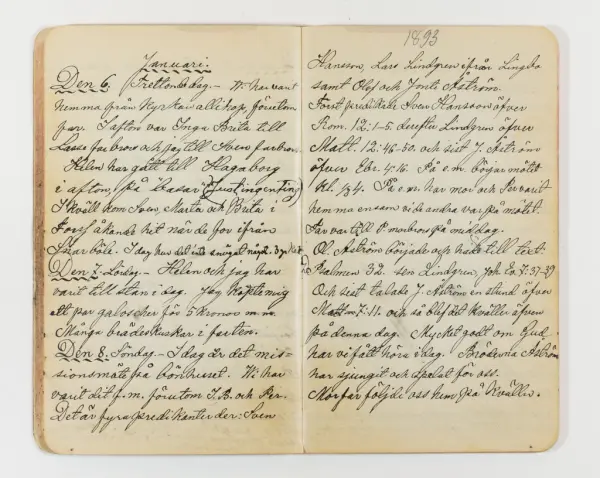 Januari.
Den 6. Trettondedag. — Vi har varit
hemma från kyrkan allihop, förutom
par. I afton var Inga Brita till
Lasse farbrors och jag till Sven farbrors.
Helen har gått till Hagaborg
i afton, på basar (Just ingenting)
I kväll kom Sven, Marta och Brita i
Fors åkande hit när de for ifrån
Snarböle. I dag har det
Den 7. Lördag. — Helen och jag har
varit till stan i dag. Jag köpte mig
ett par galoscher för 5 kronor m.m.
Många brädeskuskar i farten.
Den 8. Söndag. — I dag är det mis-
sionsmöte på bönhuset. Vi har
varit dit f.m. förutom I.B. och Per.
Det är fyra predikanter der: Sven
1893
Hansson, Lars Lindgren ifrån Lingbo
samt Olof och Jonte Åström.
Först predikade Sven Hansson öfver
Rom. 12:1-5. derefter Lindgren öfver
Matt. 12:46-50. och sist J. Åström
öfver Ebr. 4:16. På e.m. börjar mötet
Kl. ½4. På e.m. har mor och Per varit
hemma ensam vide andra var på mötet.
Far var till P. morbrors på middag.
Ol. Åström började och hade till text:
Psalmen 32. sen Lindgren, Joh. Ev. 7:37-39
Och sist talade J. Åström en stund öfver
Matt. 7:11. och så blef det kväller äfven
på denna dag. Mycket godt om Gud
har vi fått höra i dag. Bröderna Åström
har sjungit och spelat för oss.
Morfar följde oss hem på kvällen.